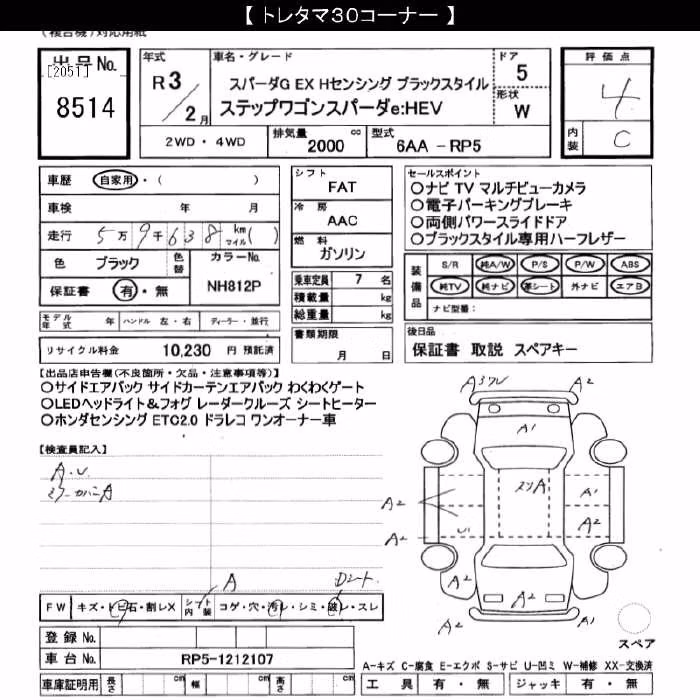 【 トレタマ30コーナー 】
(複合機)対応用紙
出品No.
[2051]
8514
年式
R3/2月
車名・グレード
スパーダG EX Hセンシング ブラックスタイル
ステップワゴンスパーダe:HEV
ドア
5
形状
W
評価点
4
内装
C
2WD・4WD
排気量 2000 cc
型式 6AA - RP5
車歴 自家用・( )
車検 年 月
走行 5万9千638 km マイル( )
色 ブラック 色替
カラーNo.
NH812P
保証書 有・無
シフト
FAT
冷房
AAC
燃料
ガソリン
乗車定員 7 名
積載量 kg
総重量 kg
書類期限
月 日
セールスポイント
○ナビ TV マルチビューカメラ
○電子パーキングブレーキ
○両側パワースライドドア
○ブラックスタイル専用ハーフレザー
装備品
S/R 純A/W P/S P/W ABS
純TV 純ナビ 革シート 外ナビ エアB
ナビ型量:
モデル年式 年 ハンドル 左・右 ディーラー・並行
リサイクル料金 10,230 円 預託済
後日品
保証書 取説 スペアキー
【出品店申告欄(不良箇所・欠品・注意事項等)】
○サイドエアバック サイドカーテンエアバック わくわくゲート
○LEDヘッドライト&フォグ レーダークルーズ シートヒーター
○ホンダセンシング ETC2.0 ドラレコ ワンオーナー車
【検査員記入】
A.U.
ミラーカバーA
A
FW キズ・トビ石・割レX
シート内装 コゲ・穴・汚レ・シミ・破レ・スレ
A2
A1
A2
A1
A2
A2
A2
U1
A2
A2
A2
A2
スペア
登録No.
車台No. RP5-1212107
車庫証明用 長さ cm 幅 cm 高さ cm
A-キズ C-腐食 E-エクボ S-サビ U-凹ミ W-補修 XX-交換済
工具 有・無 ジャッキ 有・無